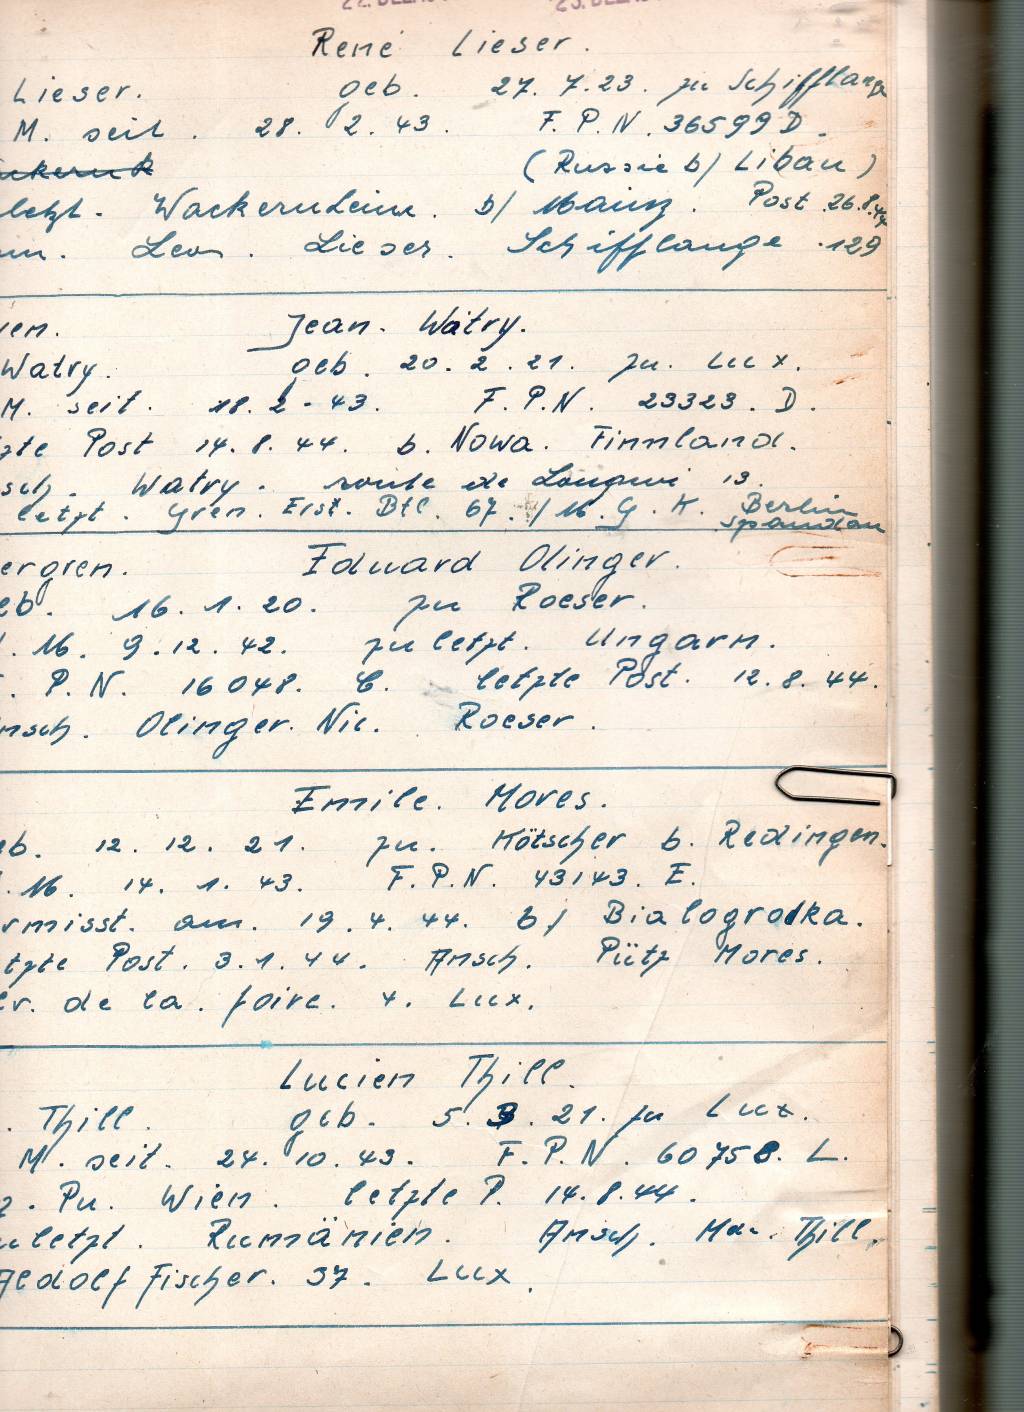 René Lieser.
Lieser. geb. 27. 7. 23. zu Schifflange
M. seit. 28. 2. 43. F. P. N. 36599 D.
(Russie b/ Libau)
letzt. Wackernheim. b/ Mainz. Post 26.8.44
Leon. Lieser. Schifflange. 129
Jean. Watry.
Watry. geb. 20. 2. 21. zu. Lux.
M. seit. 18. 2 - 43. F. P. N. 23323. D.
zte Post 14. 8. 44. b. Nowa. Finnland.
sch. Watry. route de Longwi 13.
letzt. Gren. Ers. Btl. 67. /M. G. K. Berlin
Spandau
ergren. Eduard Olinger.
eb. 16. 1. 20. zu Roeser.
M. 9. 12. 42. zuletzt. Ungarn.
P. N. 16048. C. letzte Post. 12. 8. 44.
nsch. Olinger. Nic. Roeser.
Emile. Mores.
eb. 12. 12. 21. zu. Kötscher b. Redingen.
M. 14. 1. 43. F. P. N. 43143. E.
rmisst. am. 19. 4. 44. b/ Bialogrodka.
tzte Post. 3. 1. 44. Ansch. Pütz Mores.
r. de la. foire. 4. Lux.
Lucien Thill.
. Thill. geb. 5. 3. 21. zu Lux.
M. seit. 24. 10. 43. F. P. N. 60758. L.
Pu. Wien. letzte P. 14. 8. 44.
uletzt. Rumänien. Ansch. Md. Thill.
Aldolf Fischer. 37. Lux.